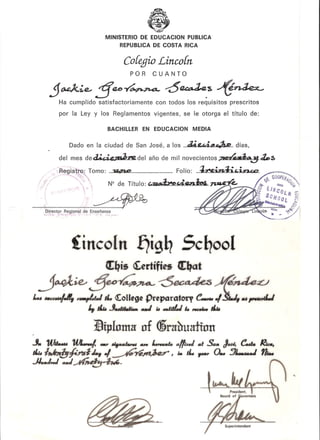 MINISTERIO DE EDUCACION PUBLICA
REPUBLICA DE COSTA RICA
Colegio Lincoln
POR CUANTO
Jackie Geovanna Secades Méndez
Ha cumplido satisfactoriamente con todos los requisitos prescritos
por la Ley y los Reglamentos vigentes, se le otorga el título de:
BACHILLER EN EDUCACION MEDIA
Dado en la ciudad de San José, a los dieciocho días,
del mes de diciembre del año de mil novecientos noventa y dos
Registro: Tomo: uno Folio: treinticinco
Nº de Título: cuatrocientos nueve
Director Regional de Enseñanza
LINCOLN
SCHOOL
Lincoln High School
This Certifies That
Jackie Geovanna Secades Méndez
has successfully completed the College Preparatory Course of Study as prescribed
by this Institution and is entitled to receive this
Diploma of Graduation
In Witness Whereof, our signatures are hereunto affixed at San José, Costa Rica,
this twenty first day of November, in the year One Thousand Nine
Hundred and
President
Board of Governors
Superintendent